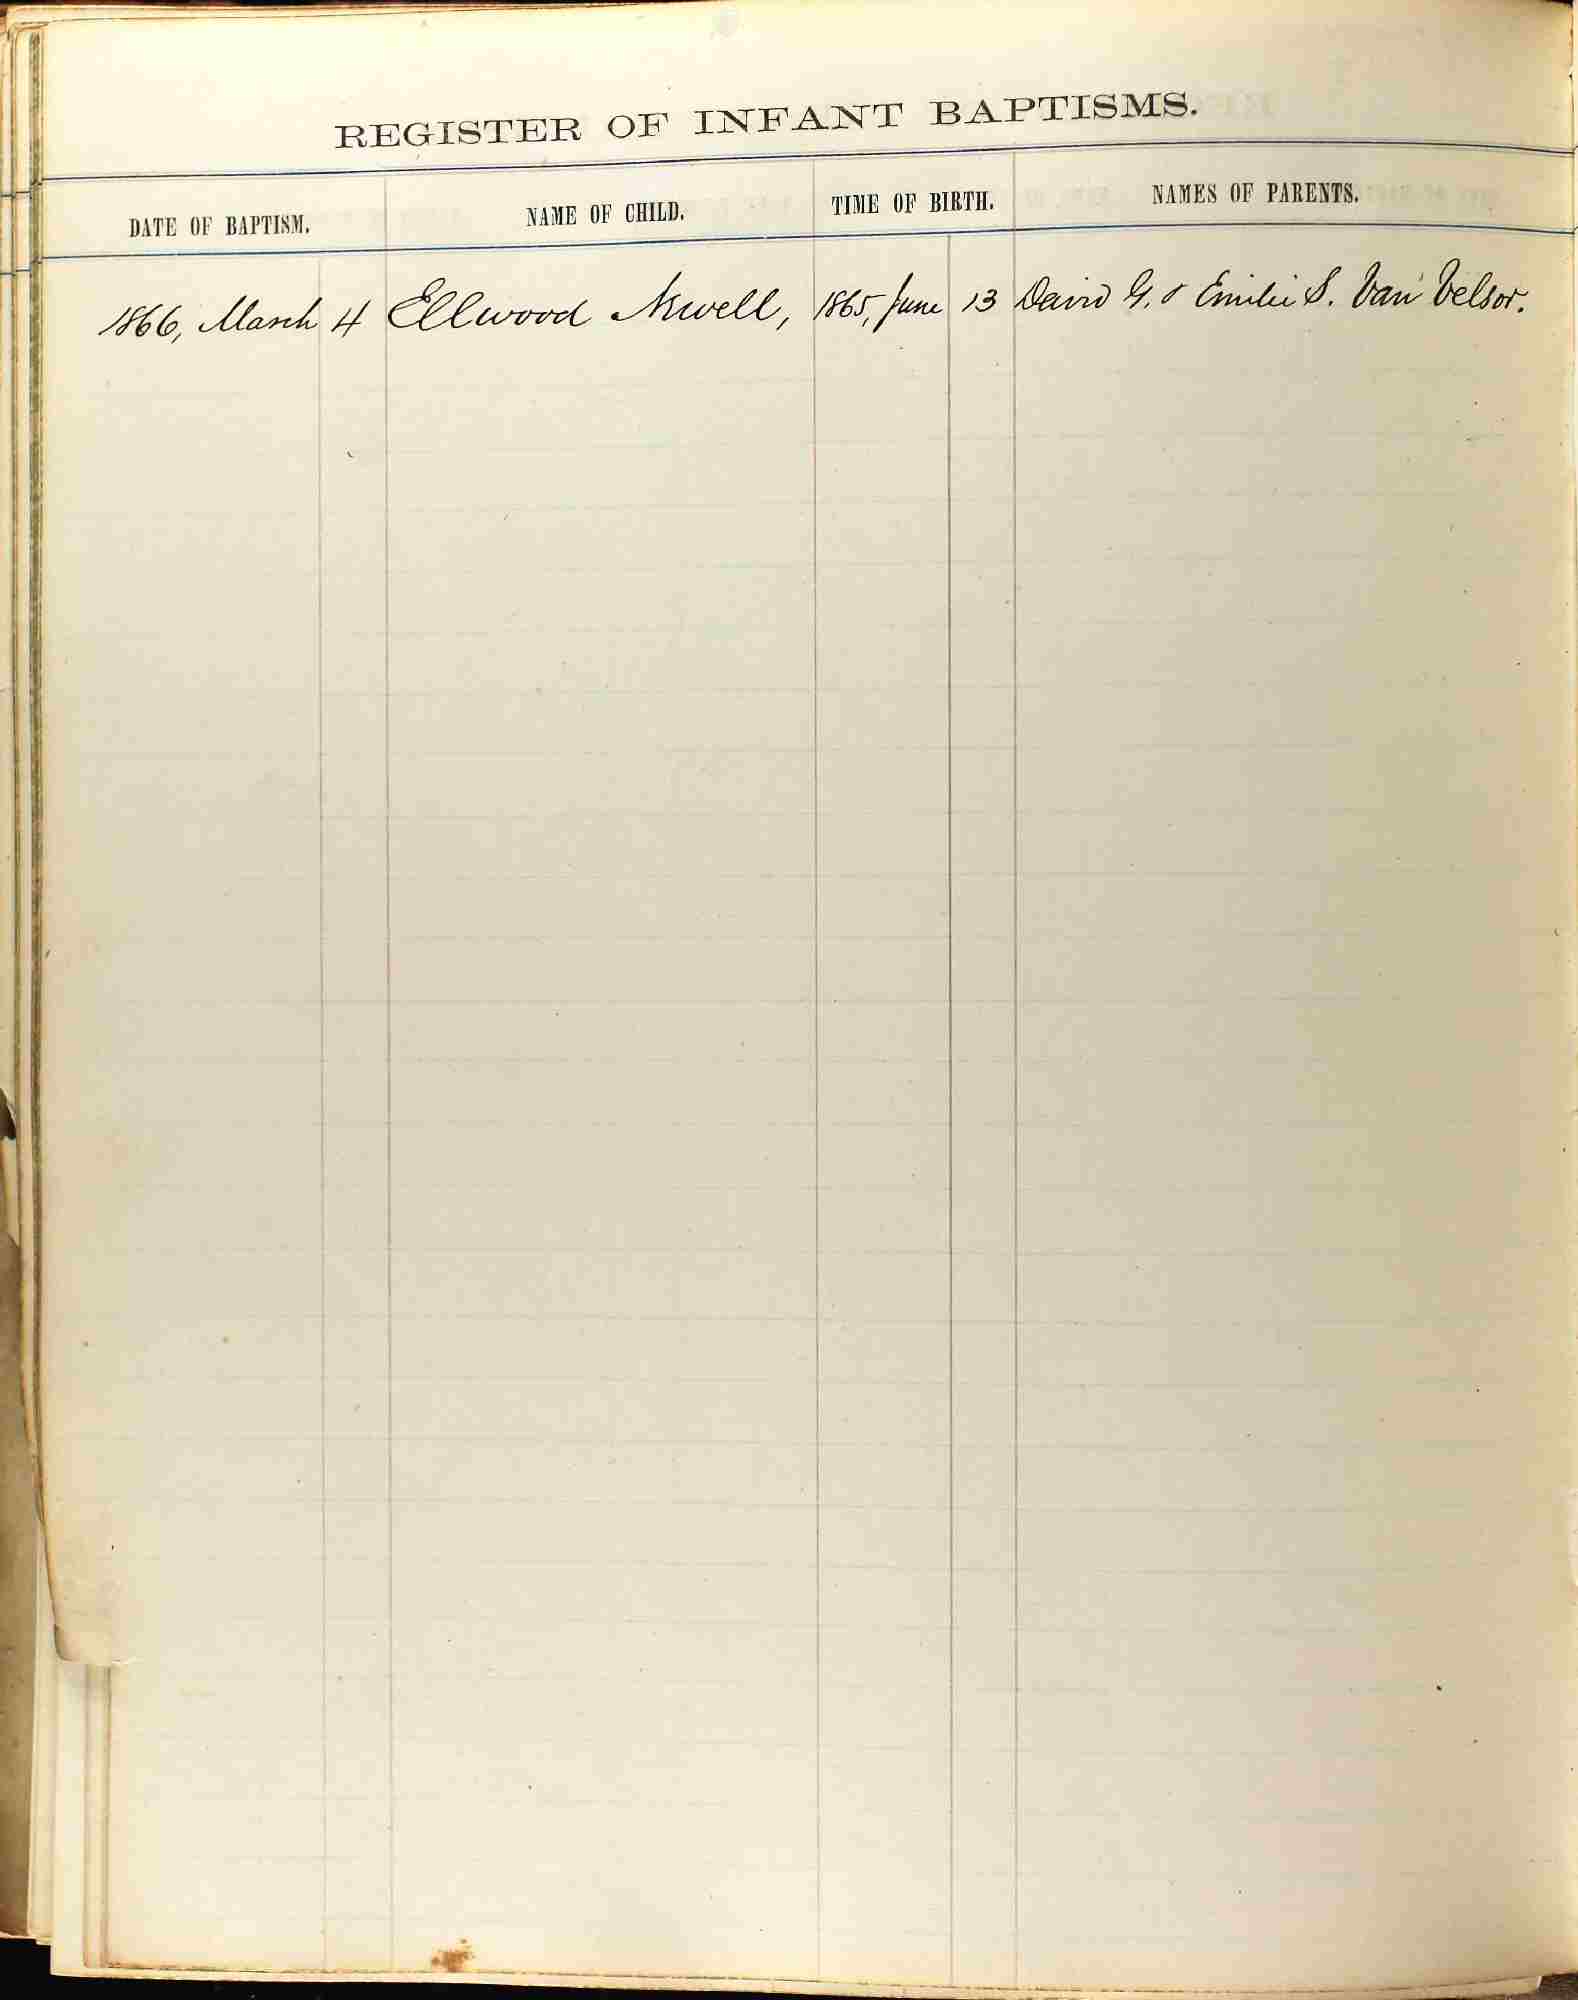 REGISTER OF INFANT BAPTISMS.
DATE OF BAPTISM. NAME OF CHILD. TIME OF BIRTH. NAMES OF PARENTS.
1866, March 4 Ellwood Newell, 1865, June 13 David G. & Emilie S. Van Velsor.